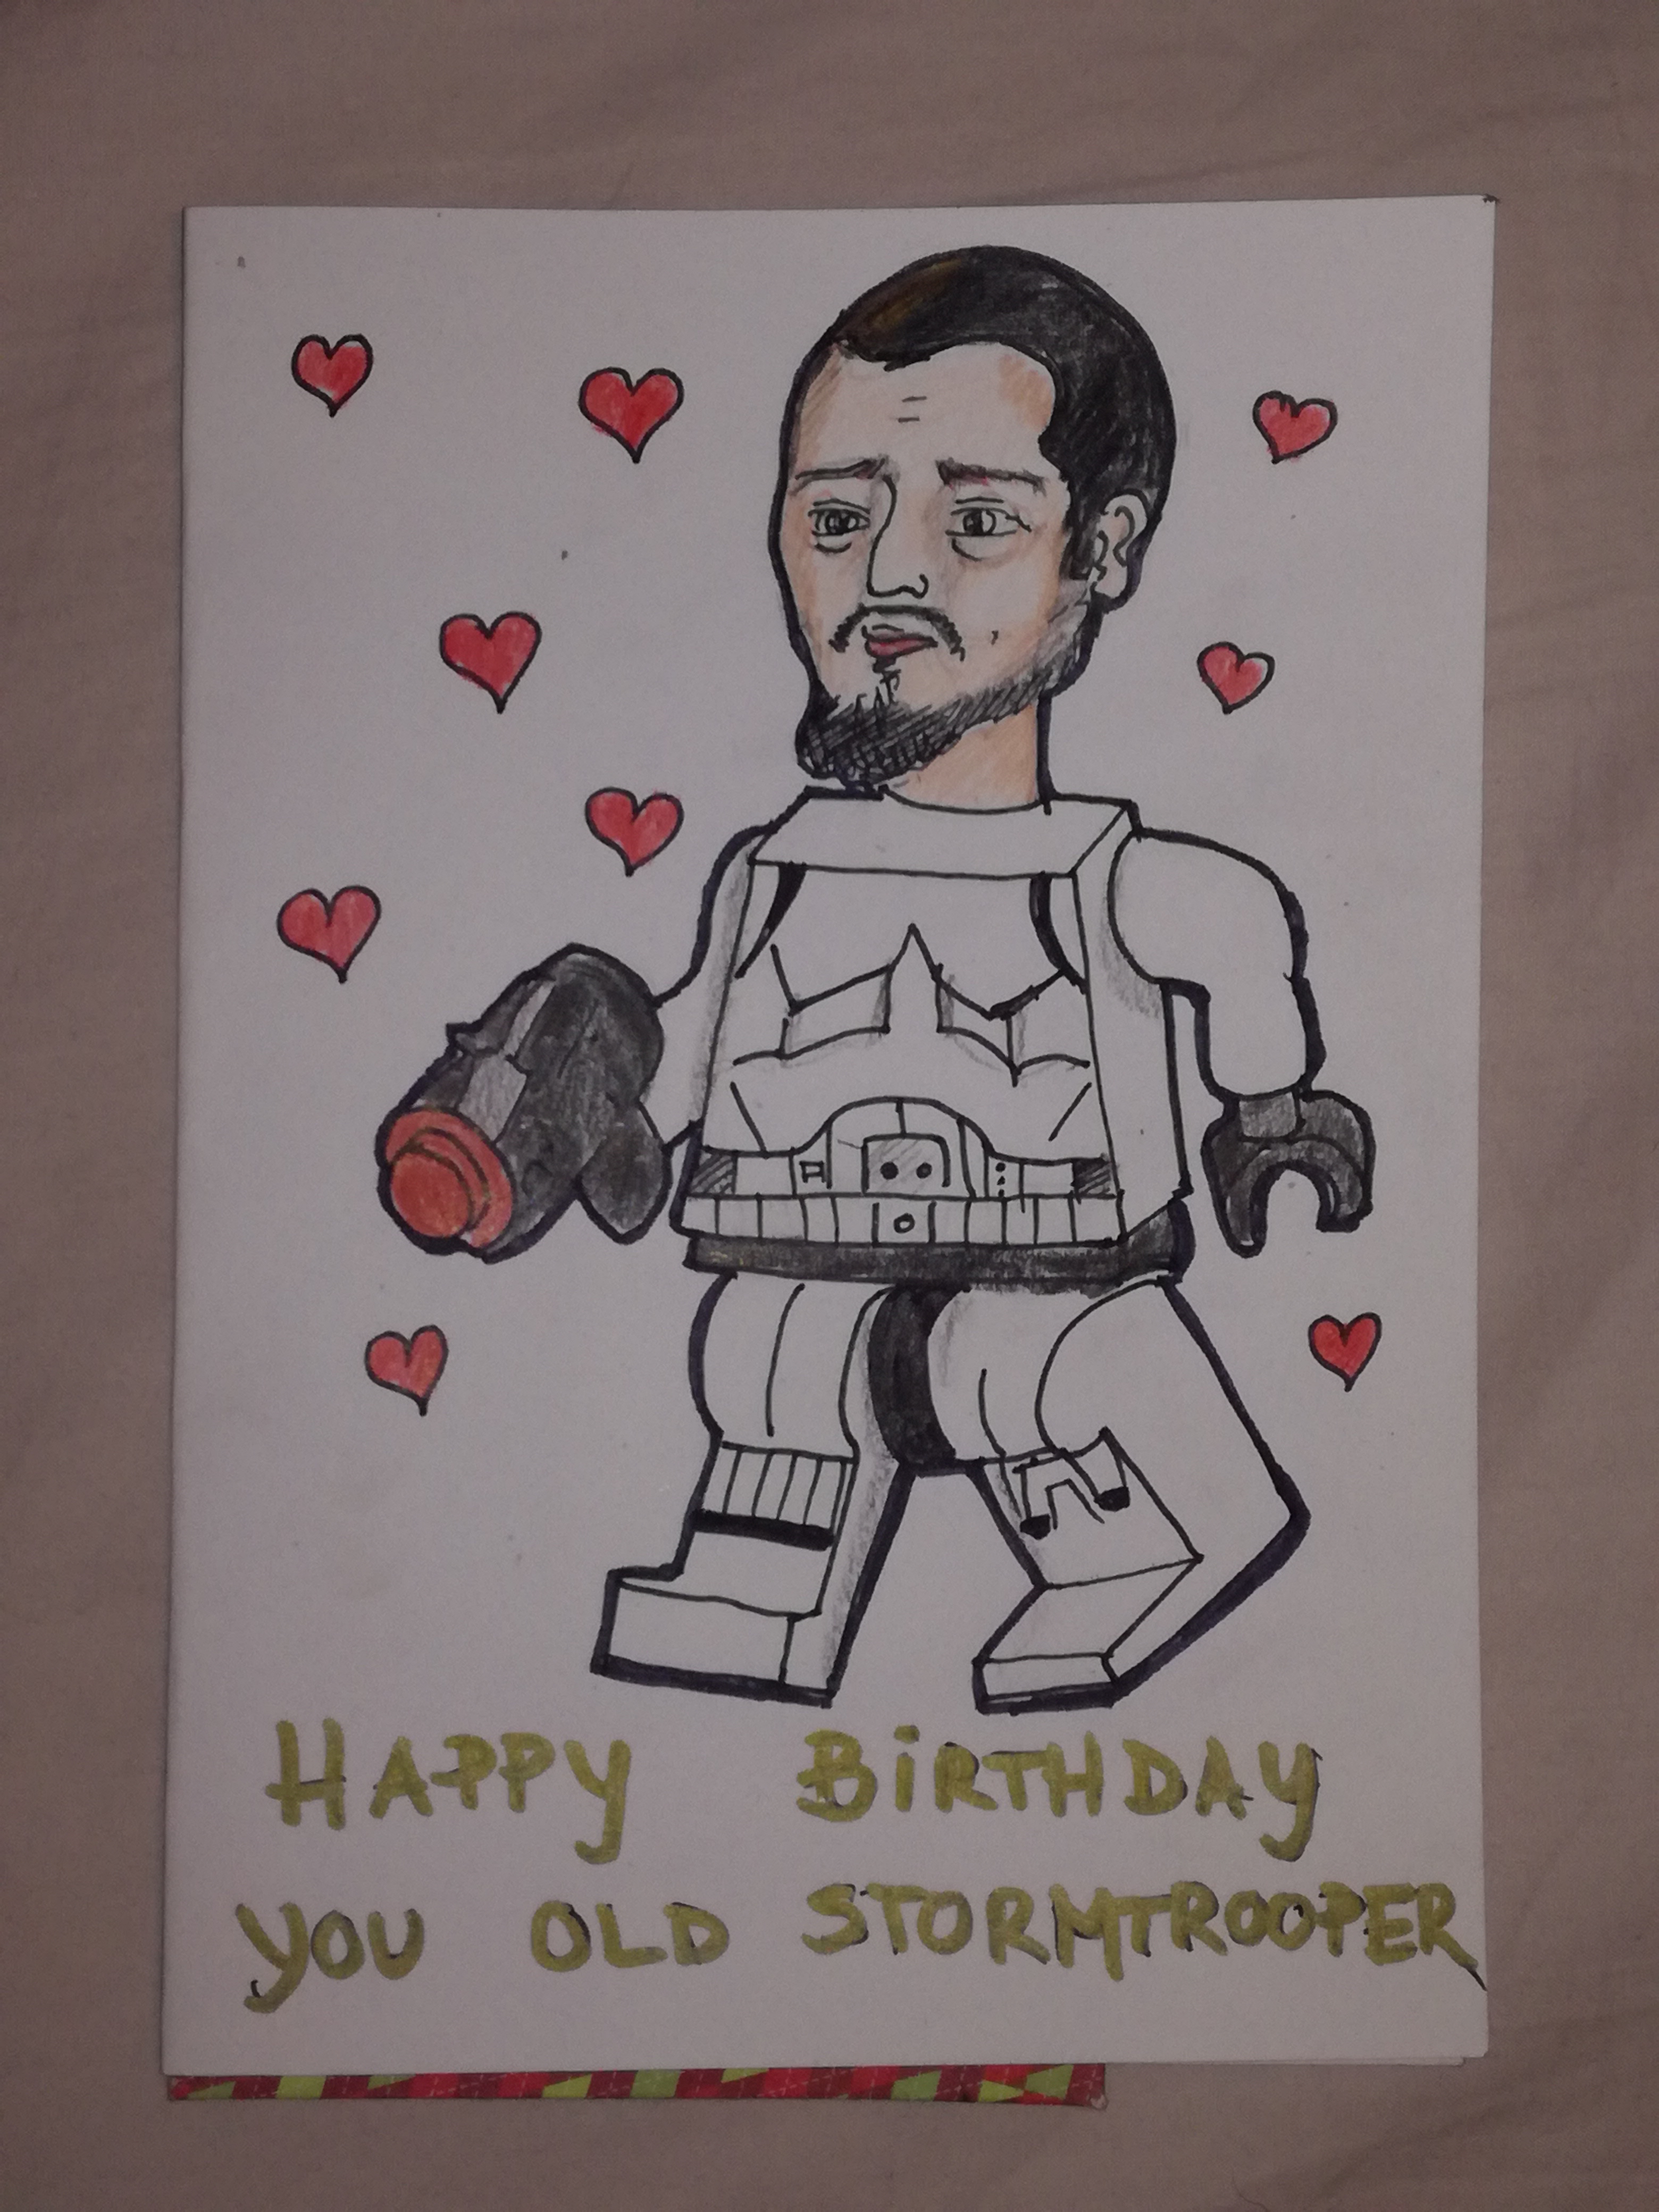 HAPPY BIRTHDAY
YOU OLD STORMTROOPER